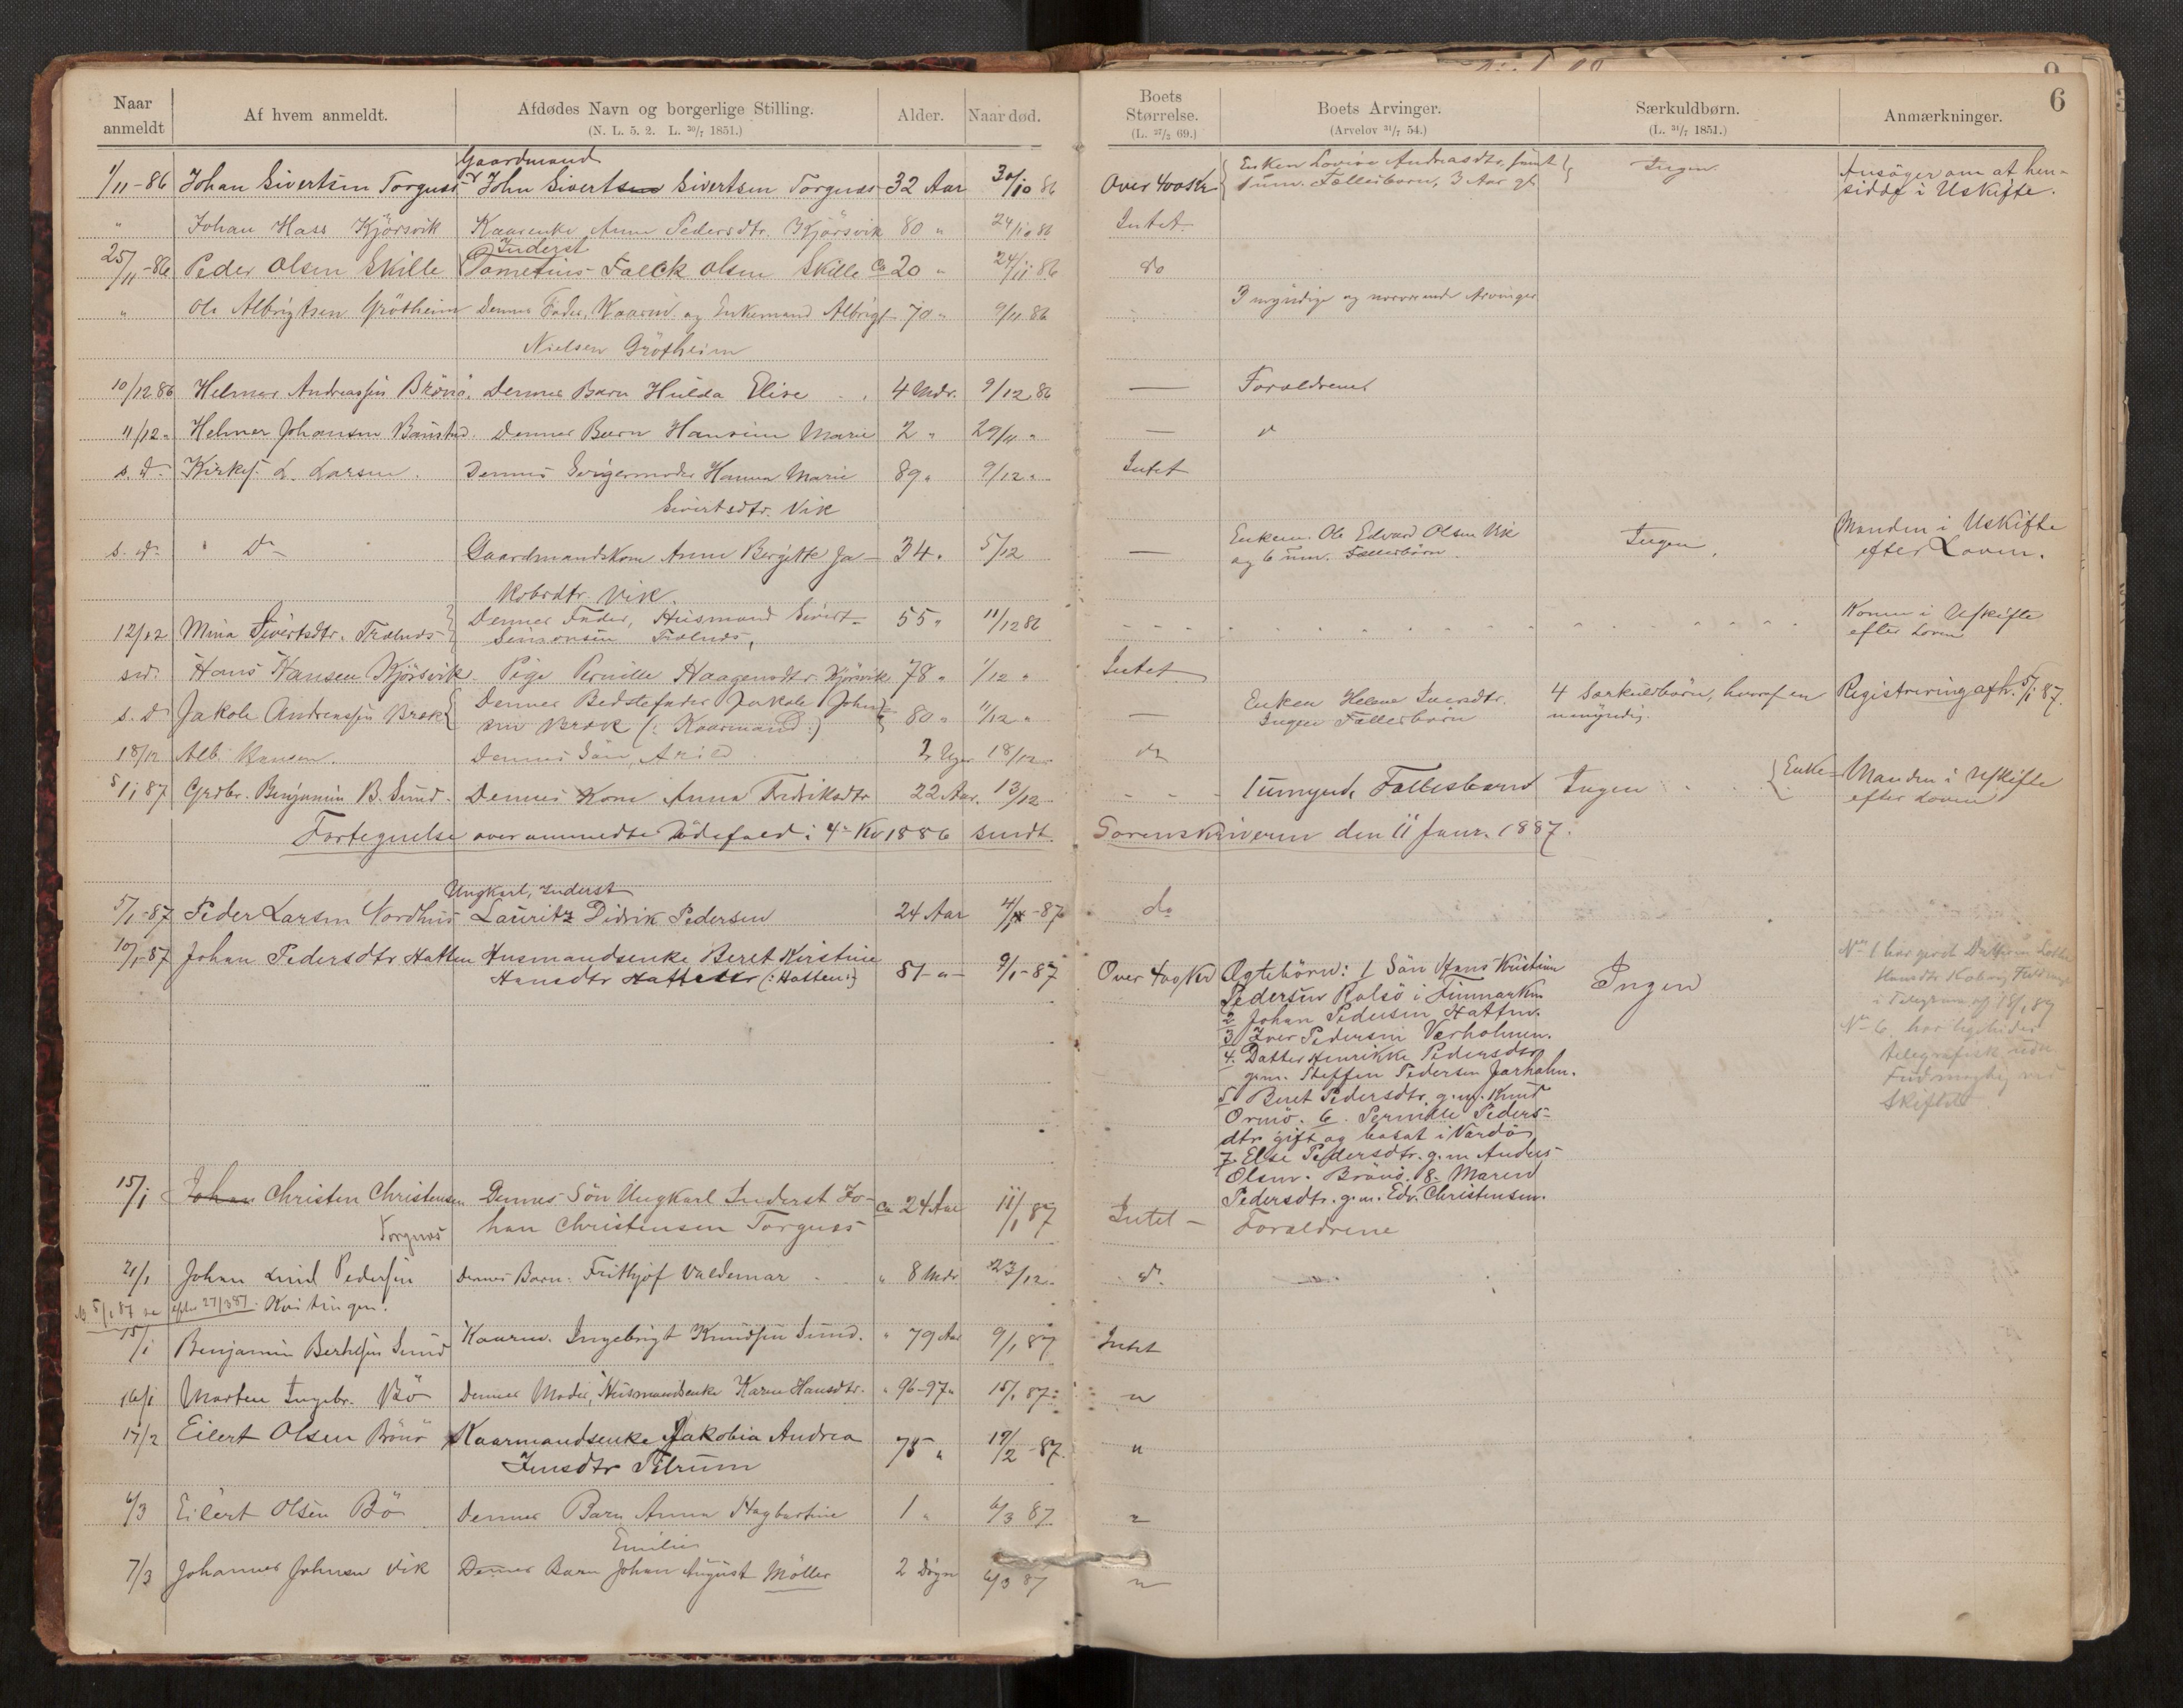 Naar anmeldt
Af hvem anmeldt.
Afdødes Navn og borgerlige Stilling.
(N. L. 5. 2. L. 30/7 1851.)
Alder.
Naar død.
Boets Størrelse.
(L. 27/2 69.)
Boets Arvinger.
(Arvelov 31/7 54.)
Særkuldbørn.
(L. 31/7 1851.)
Anmærkninger.
6
Gaardmand
1/11-86 Johan Sivertsen Torgnæs John Sivertsen Sivertsen Torgnæs 32 Aar 30/10 86 Over 400 Kr Enken Lovise Andreasdtr. samt
1 um. Fællesbarn, 3 Aar gl. Ingen Ansøger om at hen-
sidde i Uskifte.
" Johan Hass Kjörsvik Kaarenke Anne Pedersdtr. Kjörsvik 80 " 24/10 86 Intet
Inderst
25/11-86 Peder Olsen Skille Tometius Falck Olsen Skille Ca 20 " 24/11 86 do
" Ole Albrigtsen Grötheim Dennes Fader, Kaarm. og Enkemand Albrigt 70 " 9/11 86 3 myndige og nærværende Arvinger
Nielsen Grötheim
10/12 86 Helmer Andreassen Brönö. Dennes Barn Hulda Elise 4 Mdr. 9/12 86 — Forældrene
11/12 " Helmer Johansen Baustad. Dennes Barn Hansine Marie 2 " 29/11 " — d
s. d. Kirkes. L. Larsen. Dennes Svigermoder Hanna Marie 89 " 9/12 " Intet
Sivertsdtr. Vik
s. d. " Do " Gaardmandskone Anne Bergitte Ja- 34 " 5/12 — Enkem. Ole Edvard Olsen Vik
og 6 um. Fællesbörn. Ingen. Manden i Uskifte
efter Loven.
kobsdtr. Vik.
12/12 Mina Sivertsdtr. Trælnæs Dennes Fader, Husmand Sivert 55 " 11/12 86
Simonsen Trælnæs, Konen i Uskifte
efter Loven
s.d. Hans Hansen Kjörsvik Pige Pernille Haagensdtr. Kjörsvik 78 " 1/12 " Intet
s. d Jakob Andreassen Bræk Dennes Bedstefader Jakob John-
sen Bræk (: Kaarmand :) 80 " 11/12 " — Enken Helene Iversdtr.
Ingen Fællesbörn 4 Særkuldbörn, hvoraf en
umyndig. Registrering afh. 5/1 87.
18/12 Alb. Hansen. Dennes Sön, Arild 2 Uger 18/12 " do
5/1 87 Grdbr. Benjamin B. Sund. Dennes Kone Anna Fredriksdtr 22 Aar. 13/12 1 umynd. Fællesbarn Ingen Enke- Manden i Uskifte
efter Loven
Fortegnelse over anmeldte Dödsfald i 4de Kv 1886 sendt Sorenskriveren den 11 Janr. 1887.
Ungkarl, Inderst
5/1-87 Peder Larsen Nordhus Lauritz Didrik Pedersen 24 Aar 4/1-87 do
10/1-87 Johan Pedersdtr Hatten Husmandsenke Beret Kirstine
Hansdtr Hattestr (: Hatten :) 81 -"- 9/1-87 Over 400 Kr Ægtebörn: 1 Sön Hans Kristian
Pedersen Rolsö i Finmarken
2 Johan Pedersen Hatten.
3 Iver Pedersen Værholmen.
4. Datter Henrikke Pedersdtr
g.m. Steffen Pedersen Jarholm.
5 Beret Pedersdtr. g.m. Knud
Ormö. 6. Pernille Peders-
dtr. gift og bosat i Vardö
7. Else Pedersdtr. g.m Anders
Olsen Brönö. 8. Maren
Pedersdtr. g.m. Edv. Christensen.
Ingen
No 1 har givet
Hansdtr
i Telegram af
No 6. har ligeledes
telegrafisk
Fuldmagtig ved
Skiftet
15/1 Johan Christen Christensen Dennes Sön Ungkarl Inderst Jo- Ca 24 Aar 11/1 87 Intet - Forældrene
Torgnæs han Christensen Torgnæs
21/1 Johan Pedersen Dennes Barn: Frithjof Valdemar " 8 Mdr 23/12 " d.
15/1 Benjamin Berhsen Sund Kaarm. Ingebrigt Knudsen Sund. " 79 Aar 9/1 87 Intet
16/1 Morten Ingebr. Bö Dennes Moder, Husmandsenke Karen Hansdtr. " 96-97 " 15/1 87 "
17/2 Eilert Olsen Bönö Kaarmandsenke Jakobia Andrea
Jensdtr Tilrum 75 " 17/2-87. "
6/3 Eilert Olsen Bö Dennes Barn Anna Hagbartine 1 " 6/3 87 "
Emilie
7/3 Johannes Johnsen Vik Dennes Barn Johan August Möller 2 Dögn 6/3 87 "